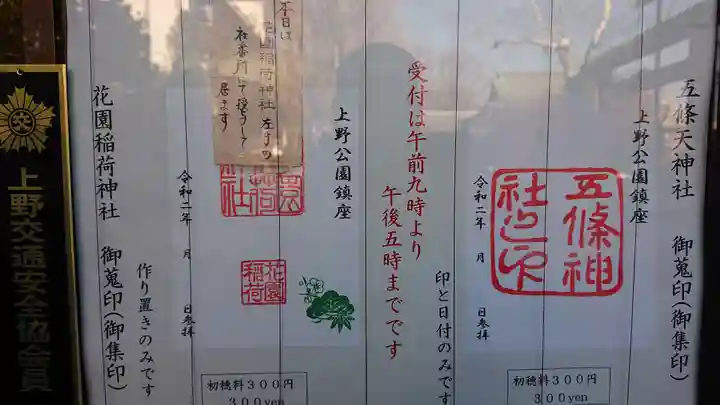 五條天神社　御蒐印(御集印)
上野公園鎮座
五條神社之印
令和二年　月　日参拝
印と日付のみです
初穂料300円
300yen
受付は午前九時より
午後五時までです
上野公園鎮座
本日は
花園稲荷神社 左手の
社番所にて
居ます
花園
稲荷
令和二年　月　日参拝
作り置きのみです
初穂料300円
300yen
花園稲荷神社　御蒐印(御集印)
上野交通安全協会員